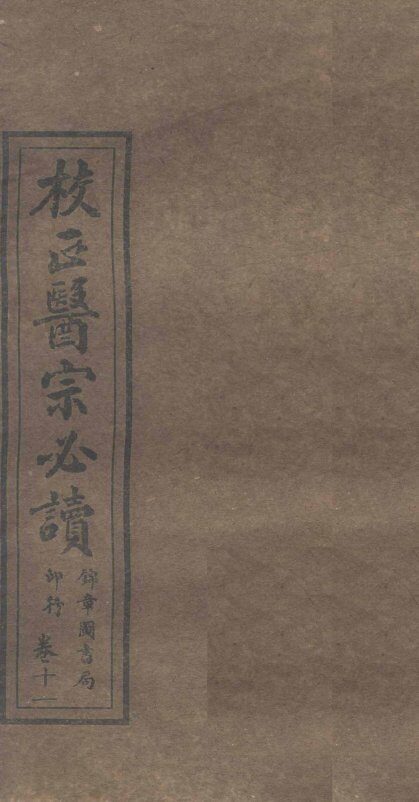 校正醫宗必讀
錦章圖書局
印行
卷十一